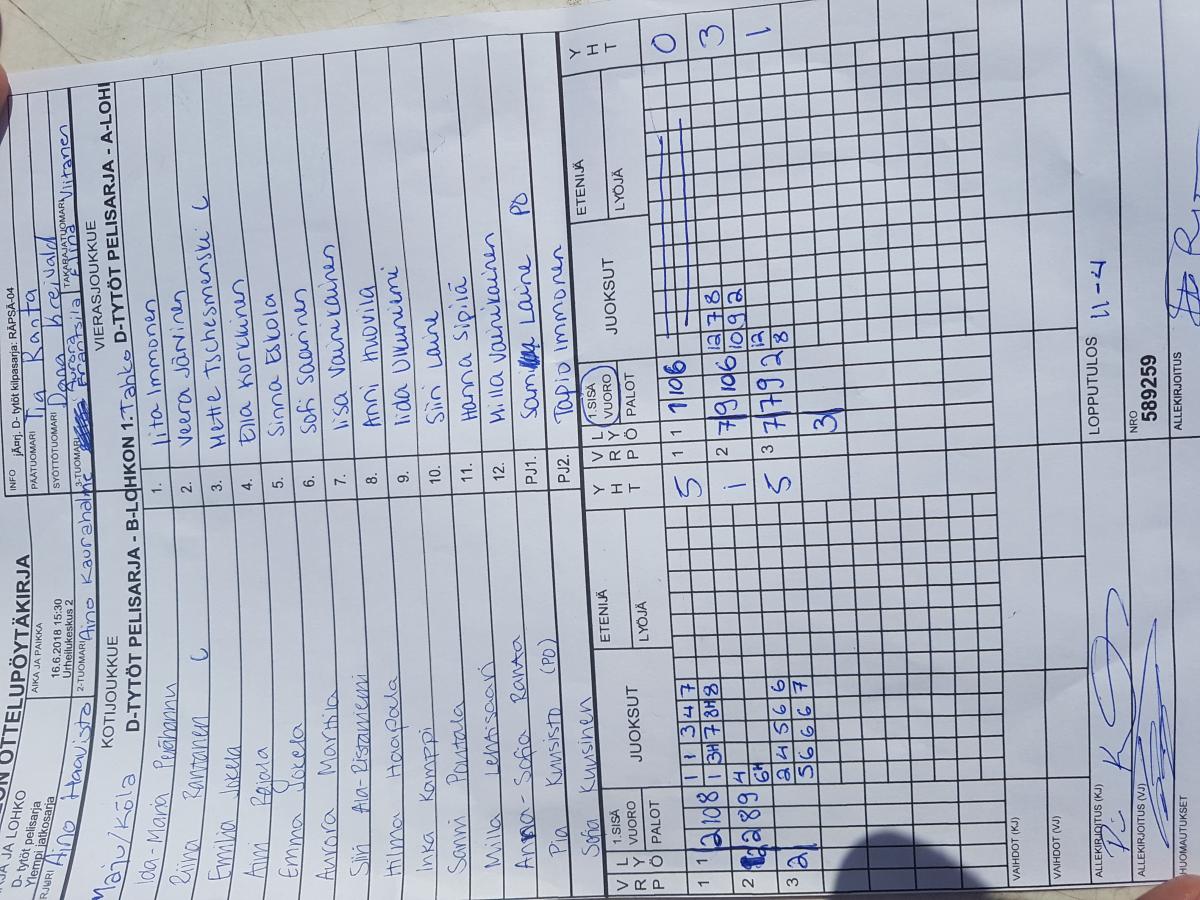 OTTELUPÖYTÄKIRJA
JA LOHKO
D- tytöt pelisarja
Ylempi jatkosarja
AIKA JA PAIKKA
16.6.2018 15:30
Urheilukeskus 2
INFO
D- tytöt kilpasarja: RÄPSÄ-04
PÄÄTUOMARI Tia Ranta
SYÖTTÖTUOMARI
Aino Haavisto
2-TUOMARI Aino Kaurahalme
3-TUOMARI
TAKARAJATUOMARI Elina Viitanen
KOTIJOUKKUE
VIERASJOUKKUE
Manju/Köla
D-TYTÖT PELISARJA - B-LOHKON 1.
Tahko
D-TYTÖT PELISARJA - A-LOH
Ida-Maria Perähannu
1. Iita Immonen
Riina Rantanen C
2. Veera Järvinen
Emilia Jokela
3. Mette Tschesmenski C
Anni Rajala
4. Ella Korkinen
Emma Jokela
5. Sinna Eskola
Aurora Marttila
6. Sofi Saarinen
Siiri Ala-Ristaniemi
7. Iisa Vainikainen
Hilma Haapala
8. Anni Huovila
Inka Kamppi
9. Iida Ulkuniemi
Sanni Pantala
10. Siiri Laine
Milla Lehtisaari
11. Hanna Sipilä
Anna-Sofia Ranto
12. Milla Vainikainen
Pia Kuusisto (PO)
PJ1. Sami Laine PO
Sofia Kuusinen
PJ2. Tapio Immonen
V R P
L Y Ö
1.SISÄ VUORO
PALOT
JUOKSUT
ETENIJÄ
LYÖJÄ
Y H T
V R P
L Y Ö
1.SISÄ VUORO
PALOT
JUOKSUT
ETENIJÄ
LYÖJÄ
Y H T
1 1 2 10 8 1 1 3 4 7 5
1 1 1 10 6 0
1 3H 7 8H 8
2 2 8 9 4 1
2 7 9 10 6 12 7 8 3
6H 10 9 2
3 2 2 4 5 6 6 5
3 7 7 9 2 12 1
5 6 6 6 7
8
3
VAIHDOT (KJ)
VAIHDOT (VJ)
ALLEKIRJOITUS (KJ)
LOPPUTULOS 11-4
ALLEKIRJOITUS (VJ)
NRO
589259
HUOMAUTUKSET
ALLEKIRJOITUS